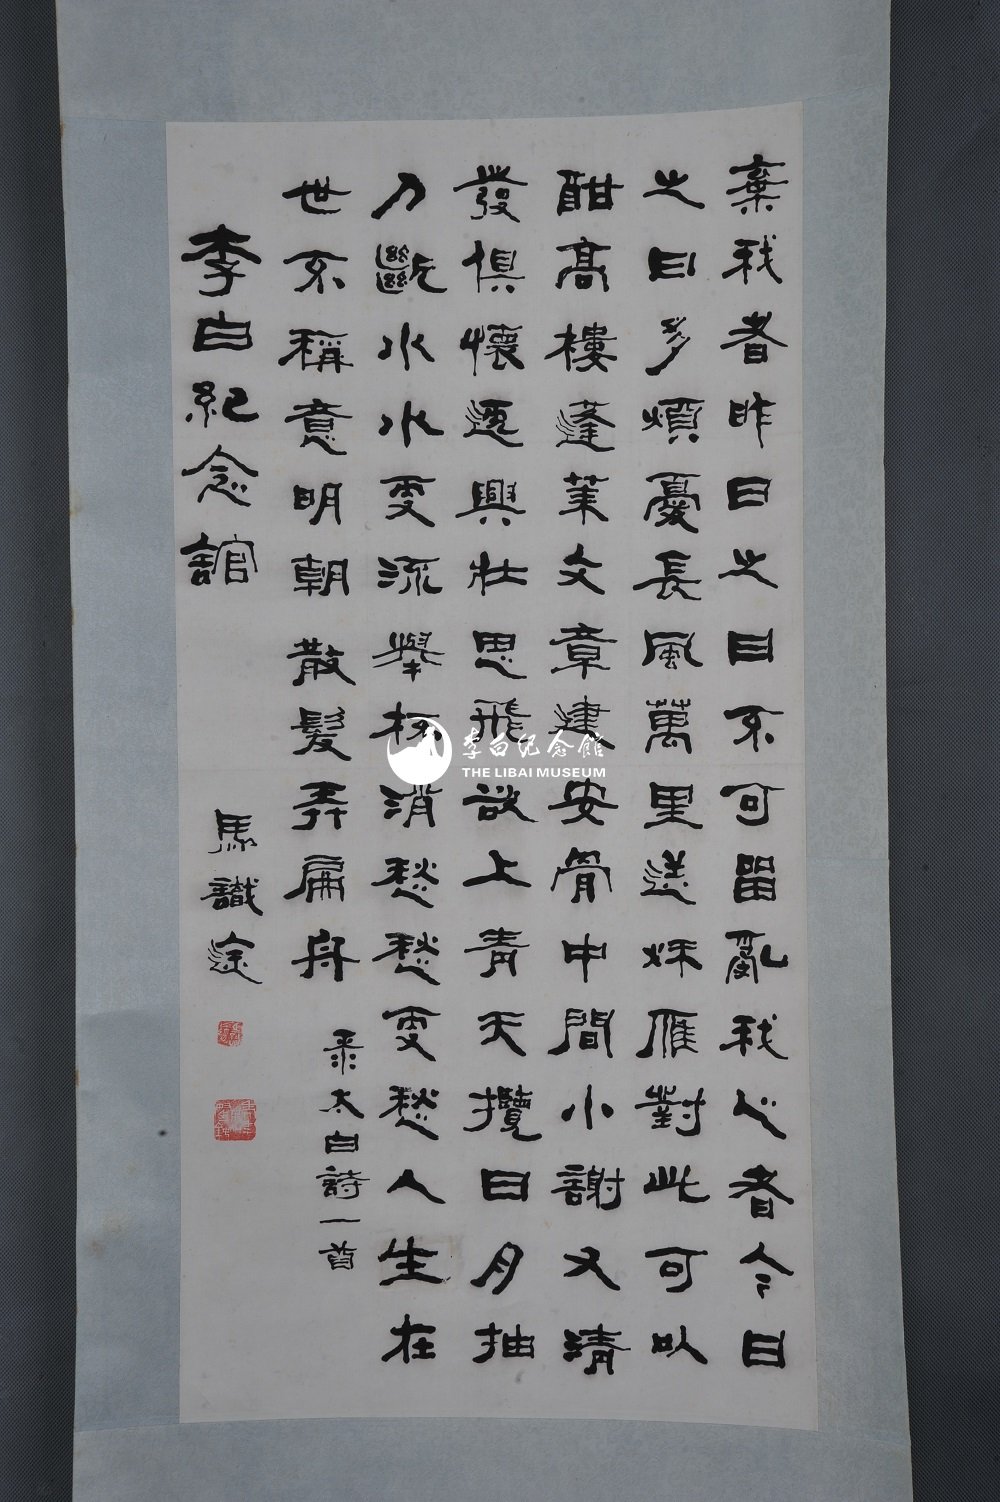 棄我者昨日之日不可留亂我心者今日
之日多煩憂長風萬里送秋雁對此可以
酣高樓蓬莱文章建安骨中間小謝又清
發俱懷逸興壯思飛欲上青天攬日月抽
刀斷水水更流舉杯消愁愁更愁人生在
世不稱意明朝散髮弄扁舟
录太白詩一首
李白紀念館
馬識途
李白纪念館
THE LIBAI MUSEUM